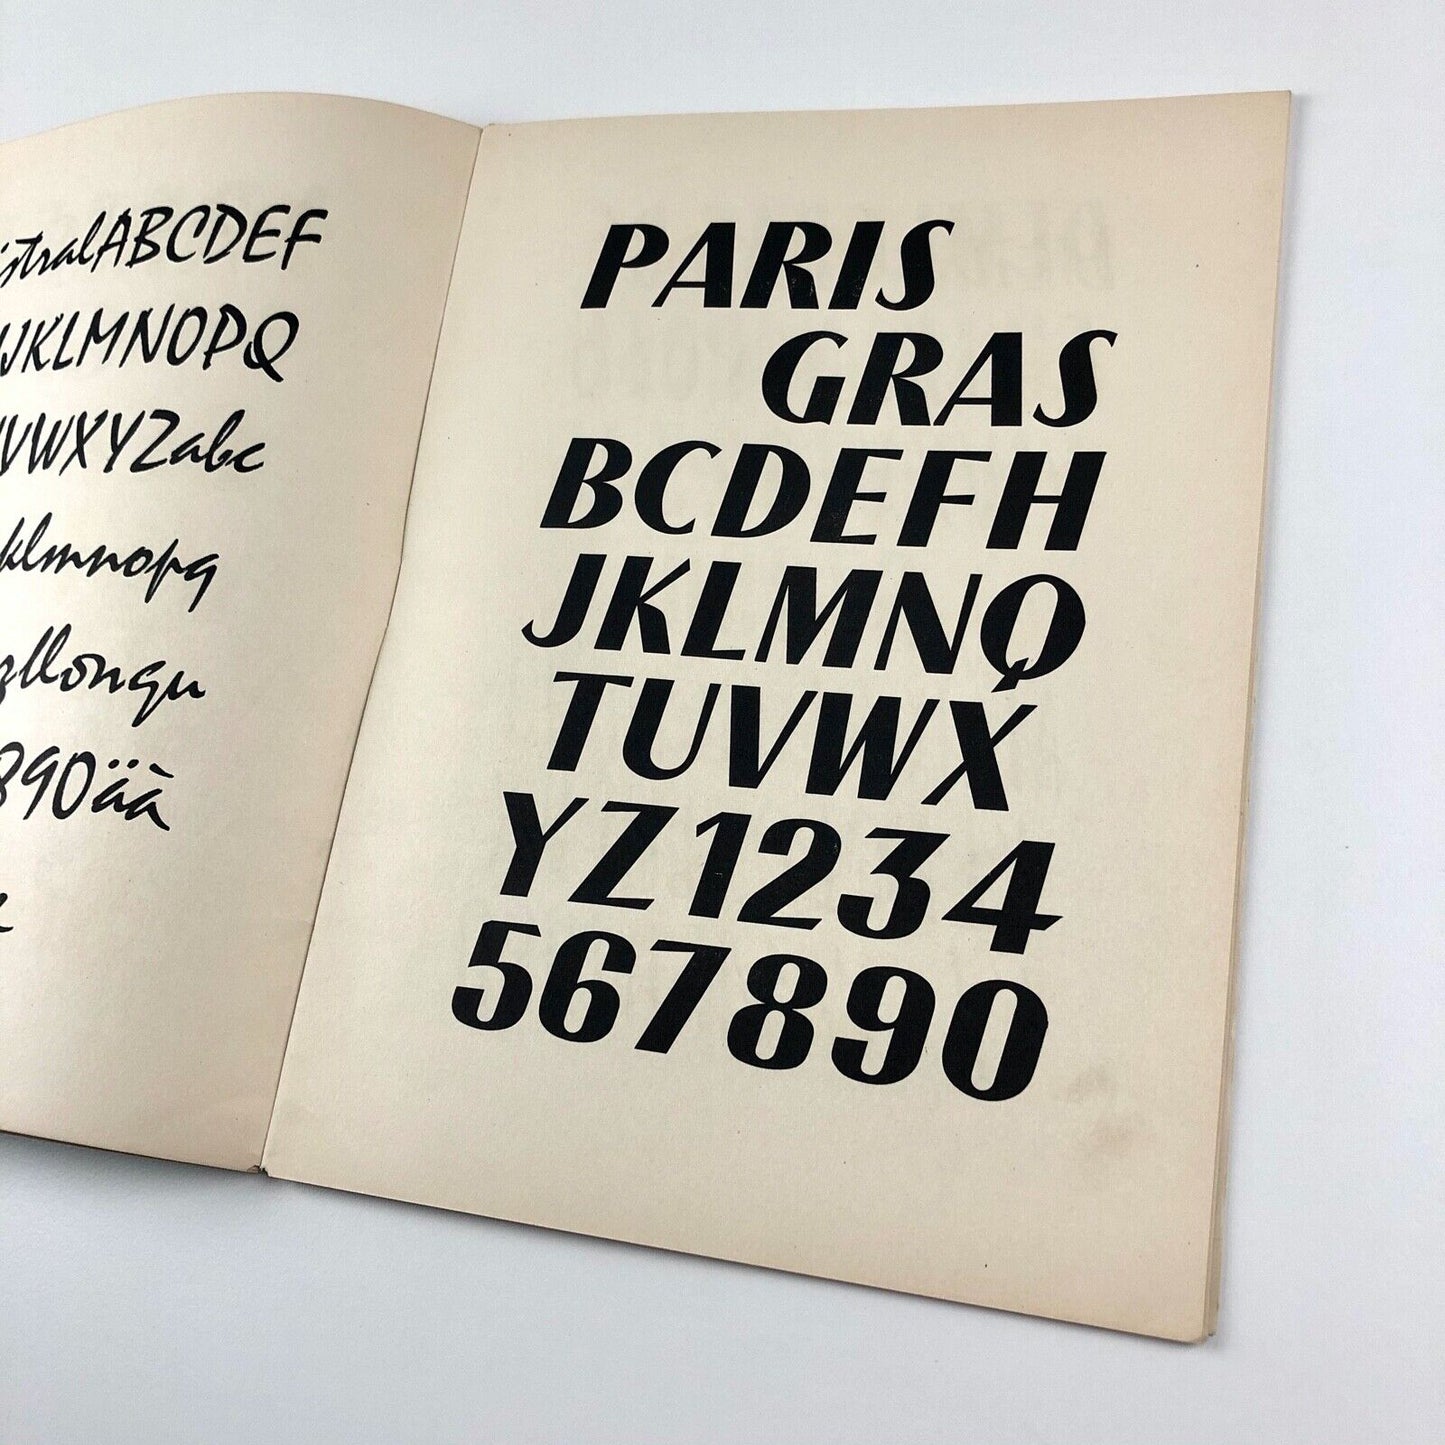 istralABCDEF
JKLMNOPQ
VWXYZabc
klmnopq
zllongu
890äà
PARIS
GRAS
BCDEFH
JKLMNQ
TUVWX
YZ1234
567890